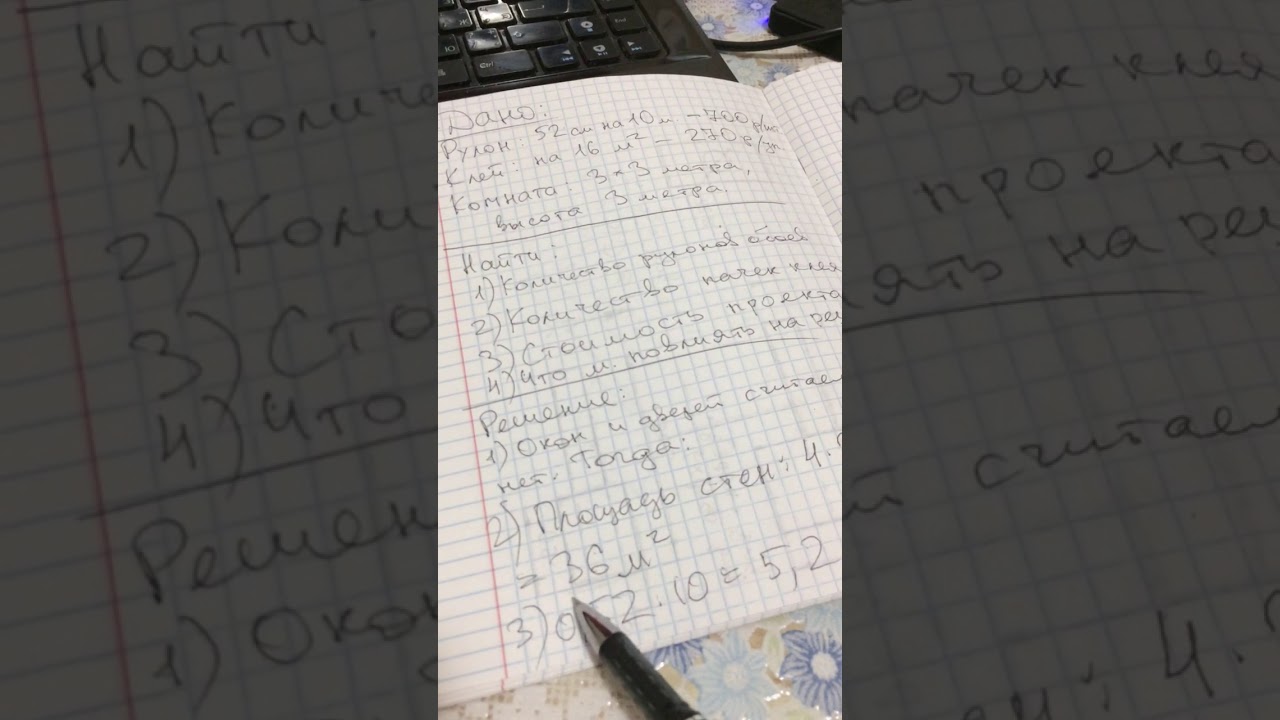 Дано:
Рулон: 52 см на 10 м. – 700 р/
Клей: на 16 м² – 270 р/уп
Комната: 3×3 метра,
высота 3 метра.
Найти:
1) Количество рулонов обоев
2) Количество пачек клея
3) Стоимость проекта
4) Что м. повлиять на ре
Решение:
1) Окон и дверей считаем
нет. Тогда:
2) Площадь стен: 4.
= 36 м²
3) 0,52 · 10 = 5,2